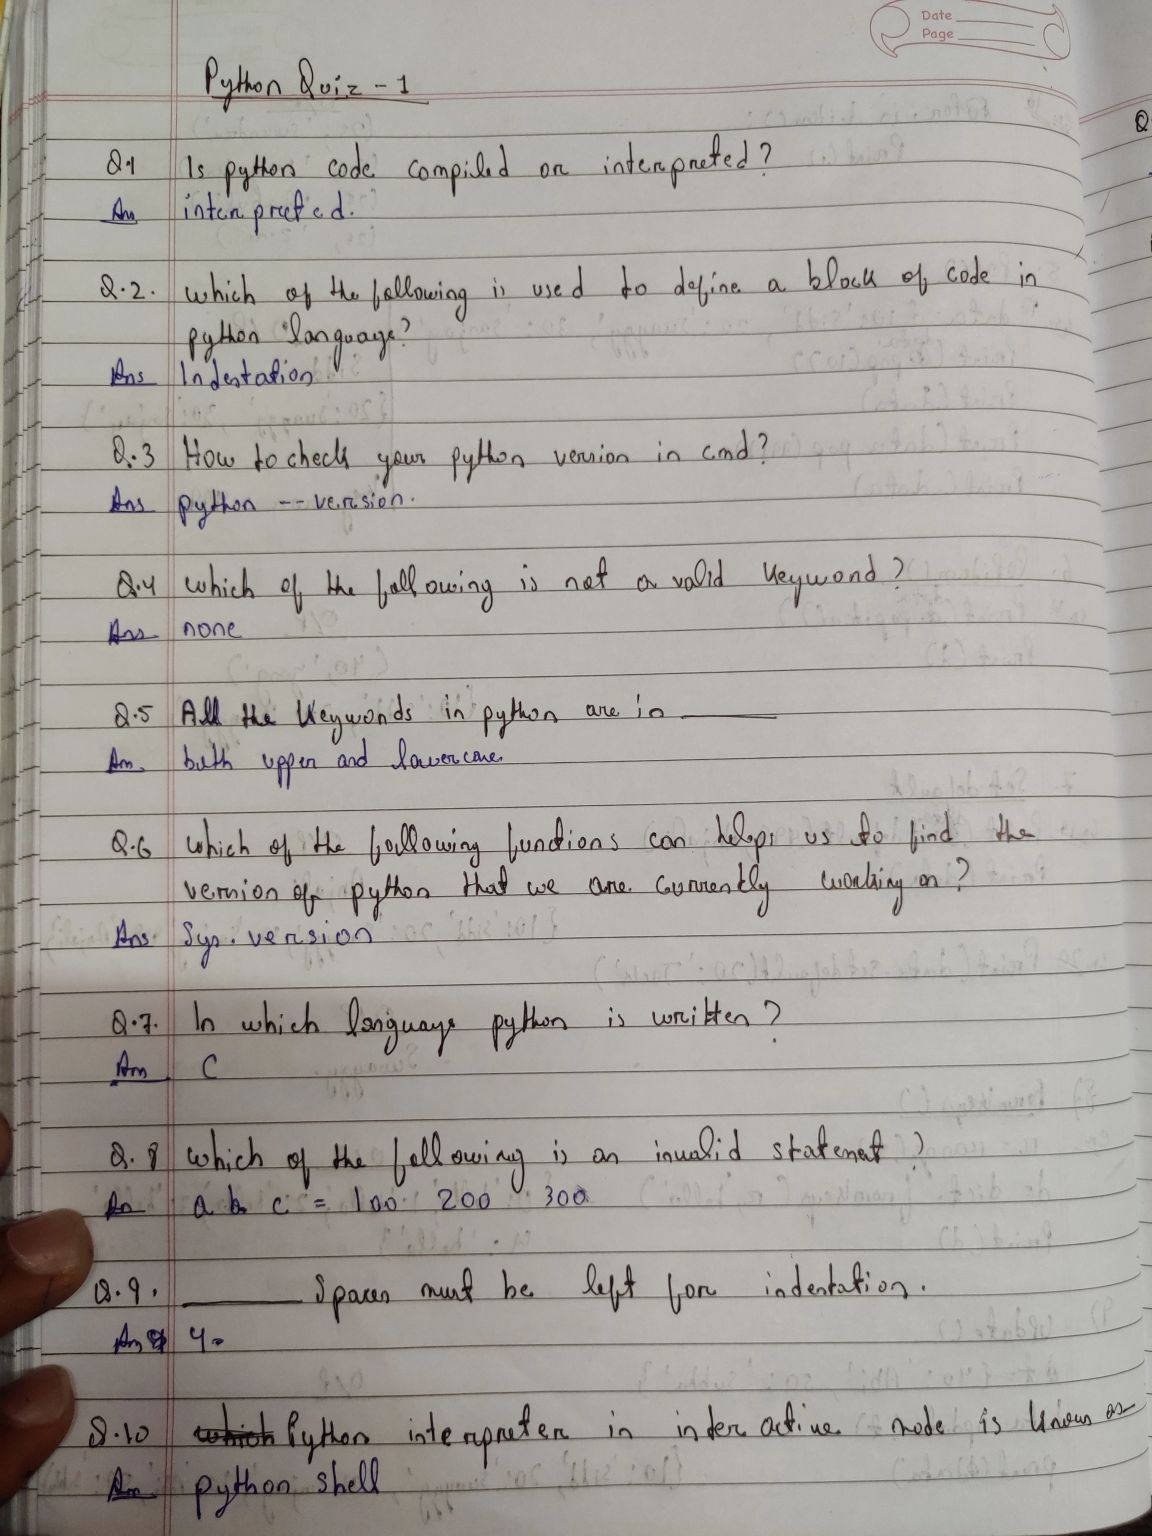 Date
Page
Python Quiz - 1
Q.1 Is python code compiled or interpreted?
Ans interpreted.
Q.2. which of the following is used to define a block of code in
python language?
Ans Indentation
Q.3 How to check your python version in cmd?
Ans python -- version.
Q.4 which of the following is not a valid keyword?
Ans none
Q.5 All the keywords in python are in ______
Ans. both upper and lowercase.
Q.6 which of the following functions can helps us to find the
version of python that we are currently working on?
Ans Sys. version
Q.7. In which language python is written?
Ans C
Q.8 which of the following is an invalid statement?
Ans a b c = 100 200 300
Q.9. ______ Spaces must be left for indentation.
Ans 4.
Q.10 Python interpreter in inter active mode is known as
Ans python shell